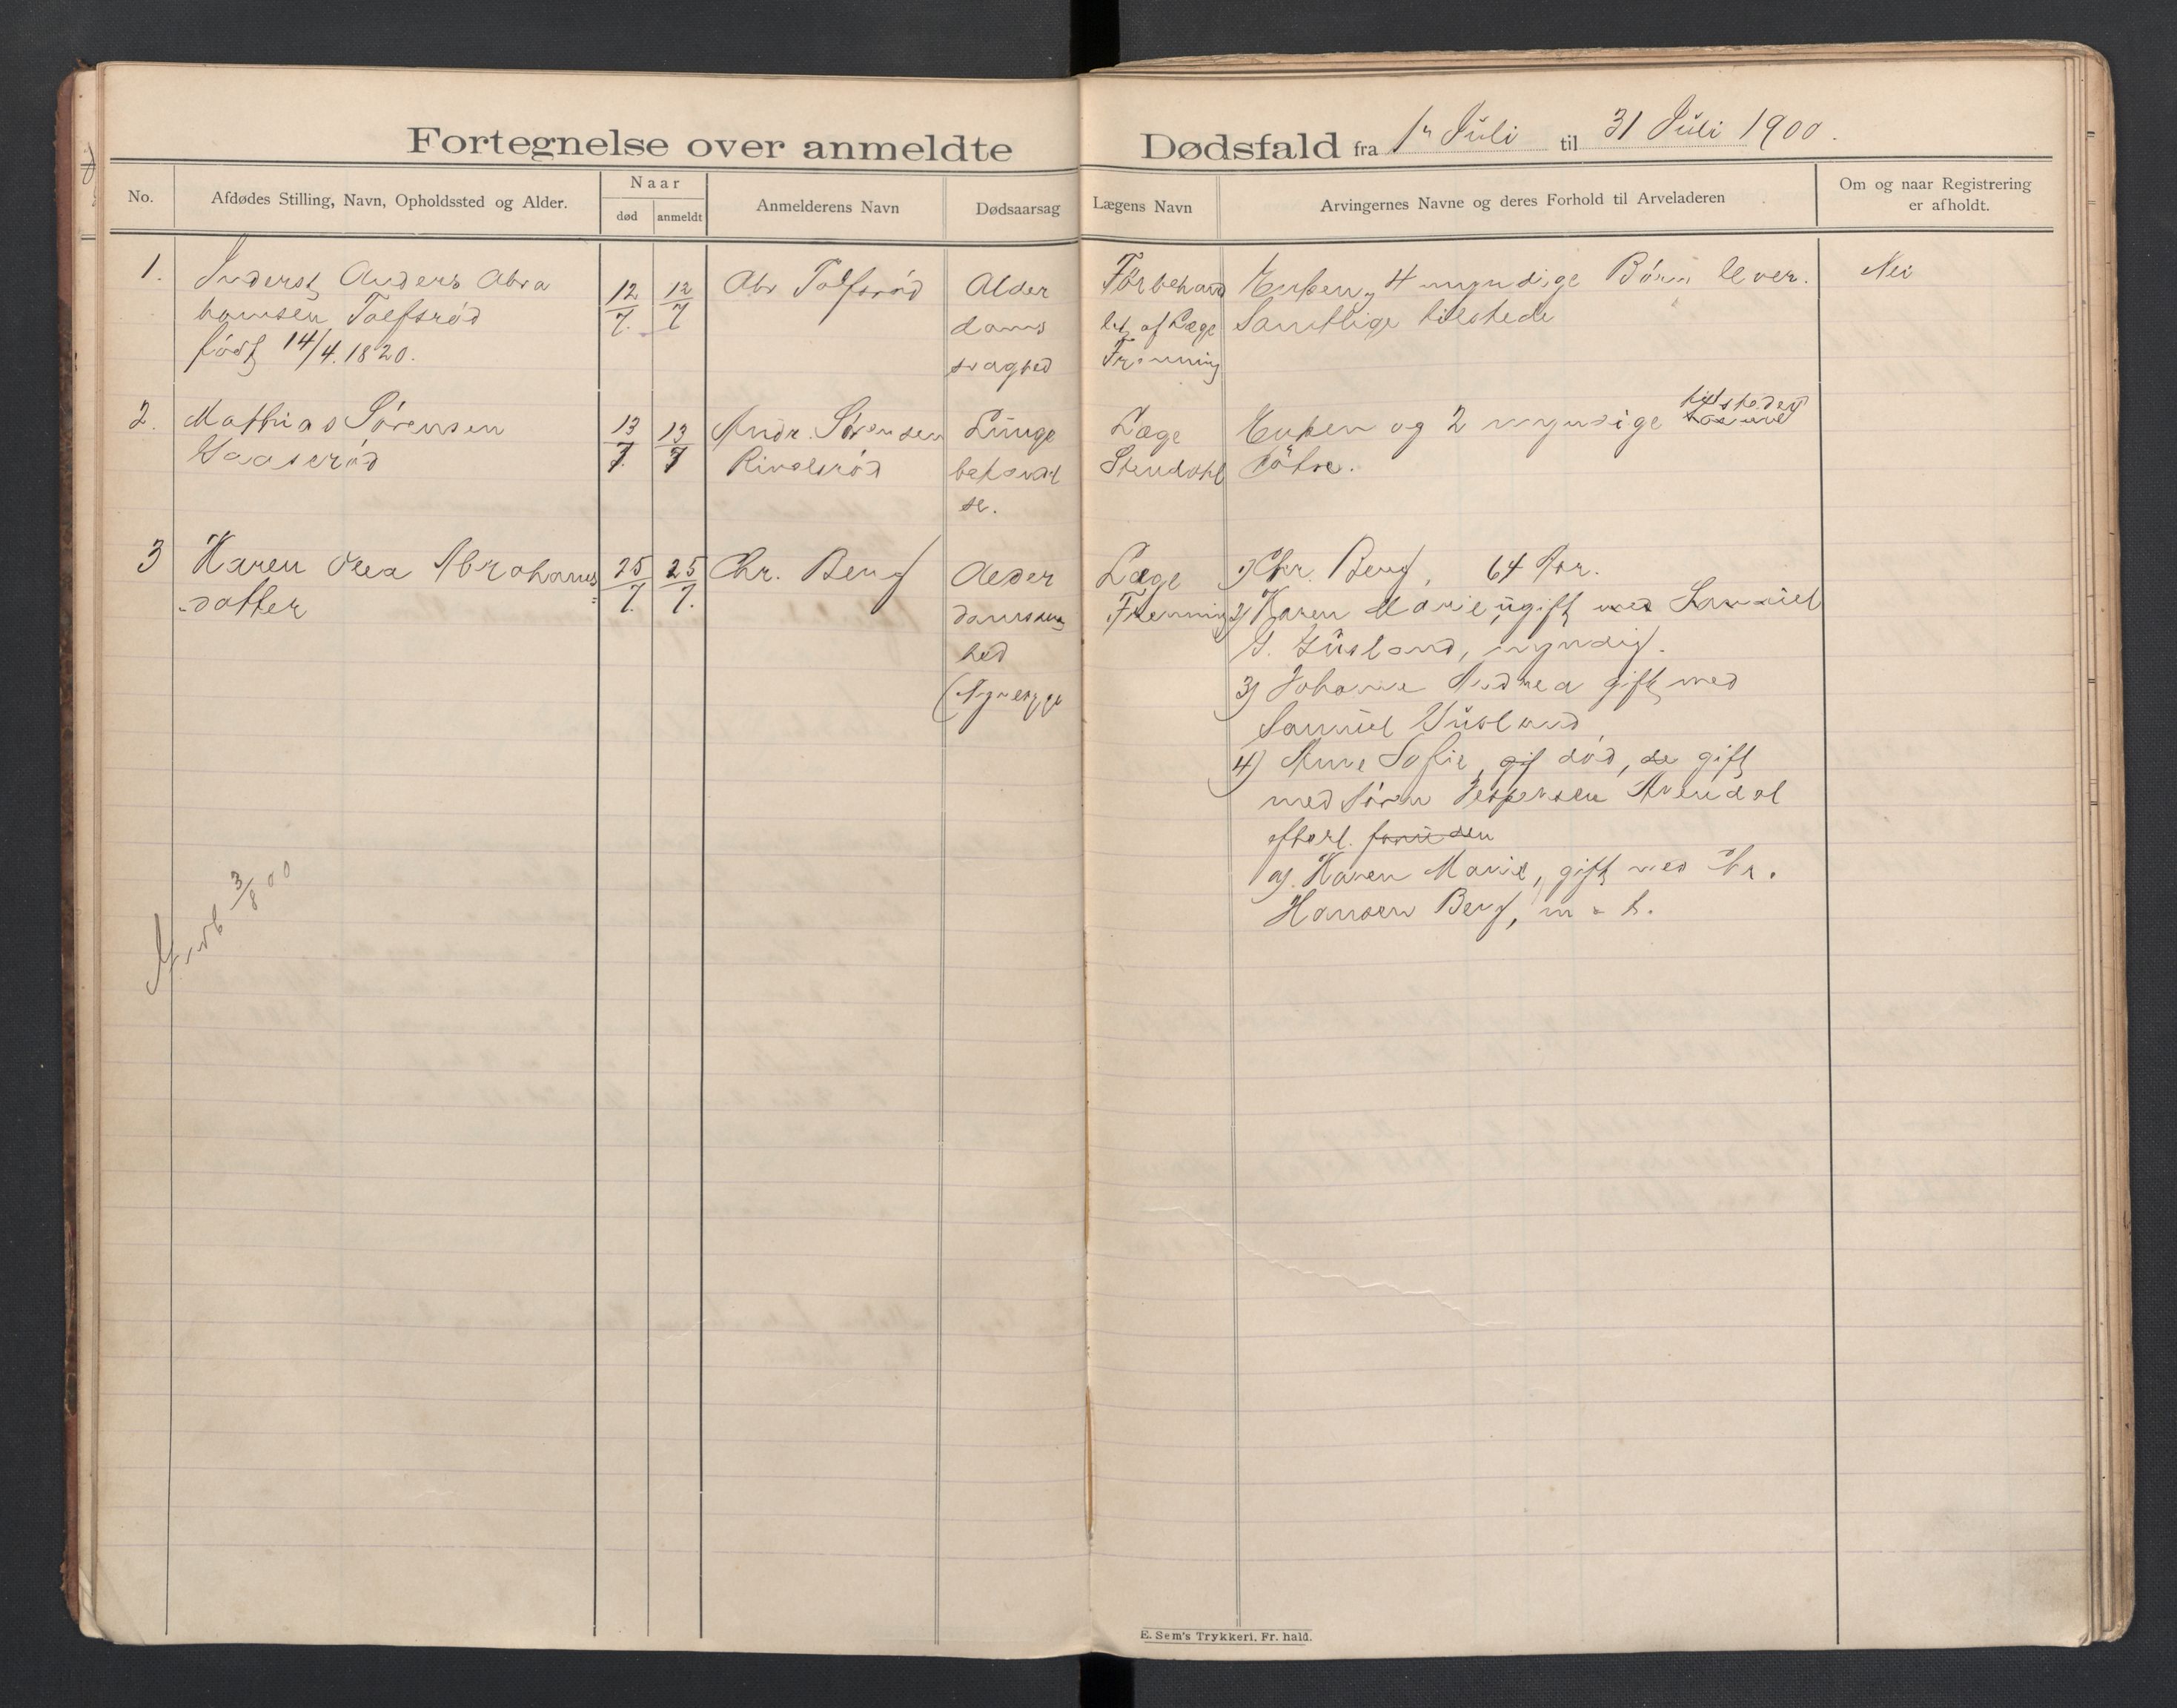 Fortegnelse over anmeldte Dødsfald fra 1ste Juli til 31 Juli 1900.
No.
Afdødes Stilling, Navn, Opholdssted og Alder.
Naar
død
anmeldt
Anmelderens Navn
Dødsaarsag
Lægens Navn
Arvingernes Navne og deres Forhold til Arveladeren
Om og naar Registrering
er afholdt.
1.
Inderst Anders Abra
hamsen Tolfsrød
født 14/4.1820.
12/7.
12/7
Abr Tolfsrød
Alder
doms
svaghed
Før behand
let af Læge
Frenning
Enken, 4 myndige Børn lever.
Samtlige tilstede
Nei
2.
Mathias Sørensen
Vaaserød
13/7.
13/7
Andr. Sørensen
Rivelsrød
Lunge
betændel
se.
Læge
Stendahl
Enken og 2 myndige
tilstedev
Døtre.
3
Karen Olea Abrahams
=datter
25/7.
25/7.
Chr. Berg
Alder
domssvag
hed
Læge
Frenning
1) Chr. Berg, 64 Aar.
2) Karen Marie, ugift med Samuel
myndig.
3) Johanne Andrea gift med
Samuel
4) Anne Sofie, gif død, de gift
med Søren Jespersen Arendal
efterl.
a). Karen Marie, gift med Kr.
Hansen Berg, m = h.
3/8 00
E. Sem's Trykkeri, Fr.hald.